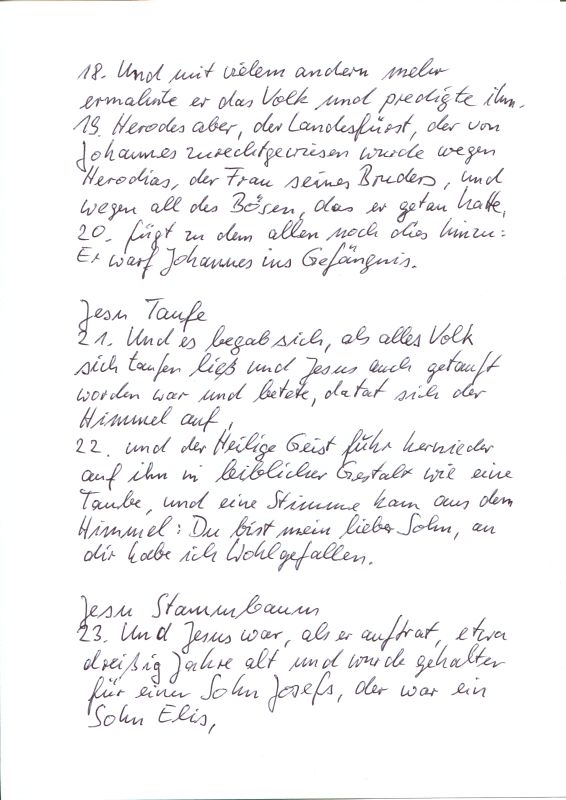 18. Und mit vielem andern mehr
ermahnte er das Volk und predigte ihm.
19. Herodes aber, der Landesfürst, der von
Johannes zurechtgewiesen wurde wegen
Herodias, der Frau seines Bruders, und
wegen all des Bösen, das er getan hatte,
20. fügt zu dem allen noch dies hinzu:
Er warf Johannes ins Gefängnis.
Jesu Taufe
21. Und es begab sich, als alles Volk
sich taufen ließ und Jesus auch getauft
worden war und betete, da tat sich der
Himmel auf,
22. und der Heilige Geist fuhr hernieder
auf ihn in leiblicher Gestalt wie eine
Taube, und eine Stimme kam aus dem
Himmel: Du bist mein lieber Sohn, an
dir habe ich Wohlgefallen.
Jesu Stammbaum
23. Und Jesus war, als er auftrat, etwa
dreißig Jahre alt und wurde gehalten
für einen Sohn Josefs, der war ein
Sohn Elis,